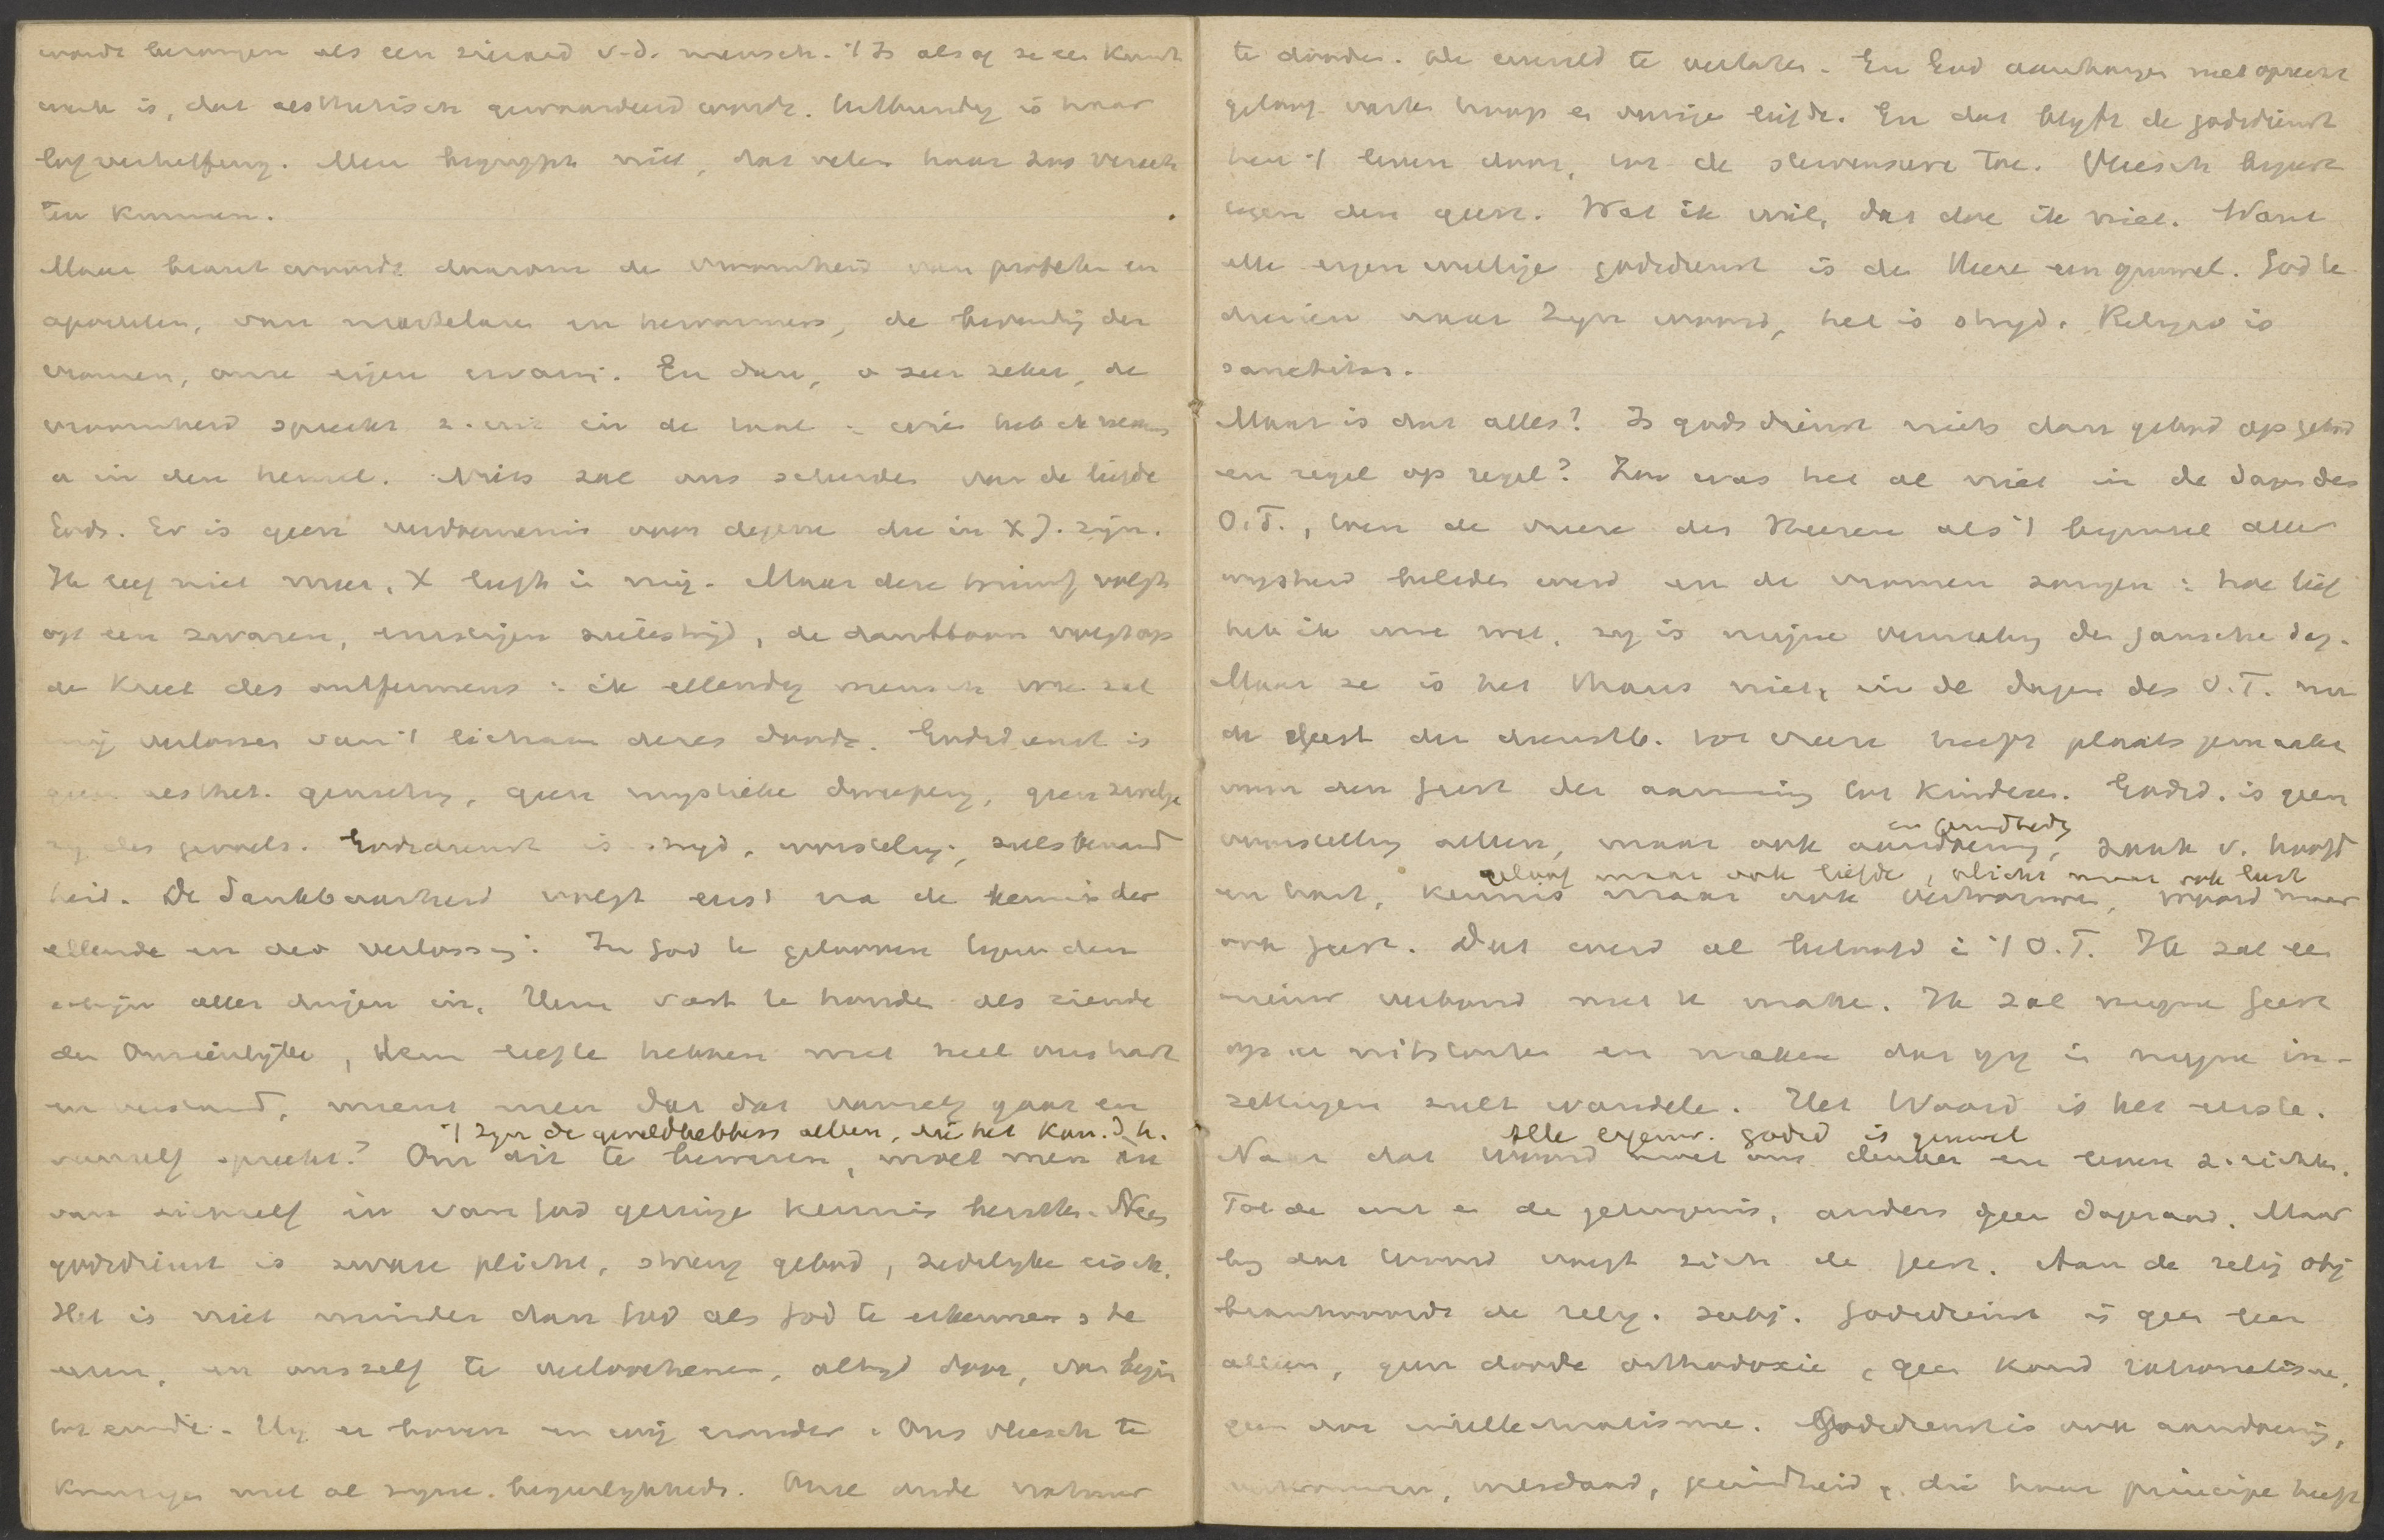 wordt bezongen als een sieraad v.d. mensch. 't Is alsof ze een kunst
werk is, dat aesthetisch gewaardeerd wordt. Uitbundig is haar
lofverheffing. Men begrypt niet, dat velen haar zoo verach
ten kunnen.
Maar beantwoordt daaraan de vroomheid van profeten en
apostelen, van martelaren en hervormers, de bevinding der
vromen, onze eigen ervaring. En dan, o zeer zeker, de
vroomheid spreekt z. uit in de taal: wien heb ik nevens
u in den hemel. Niets zal ons scheiden van de liefde
Gods. Er is geen verdoemenis voor degenen die in X J. zijn.
Ik leef niet meer, X leeft in mij. Maar deze triumf volgt
op een zwaren, ernstigen zielestrijd, de danktoon volgt op
de kreet des ontfermens: ik ellendig mensch wie zal
mij verlossen van 't lichaam dezes doods. Godsdienst is
geen aesthet. genieting, geen mystieke dweepery, geen zwelge
ry des gevoels. Godsdienst is stryd, worsteling, zielsbenauwd
heid. De dankbaarheid volgt eerst na de kennis der
ellende en der verlossing. In God te gelooven tegen den
schijn aller dingen in, Hem vast te houden als ziende
den Onzienlijke, Hem liefte hebben met heel ons hart
en verstand, meent men dat dat vanzelf gaat en
't Zyn de geweldhebbers alleen, die het Kon. d. h.
vanzelf spreekt? Om dit te beweren, moet men in
van zichzelf en van God geringe kennis bezitten. Neen
godsdienst is zware plicht, streng gebod, zedelyke eisch.
Het is niet minder dan God als God te erkennen & te
eeren, en onszelf te verloochenen, altyd door, van begin
tot einde. Hy er boven en wij eronder. Ons vleesch te
kruisigen met al zyne begeerlykheden. Onze oude natuur
te dooden. de wereld te verlaten. En God aanhangen met oprecht
geloof vaste hoop en vurige liefde. En dat blyft de godsdienst
heel 't leven door, tot de stervensure toe. Vleesch begeert
tegen den geest. Wat ik wil, dat doe ik niet. Want
alle eigenwillige godsdienst is den Heere een gruwel. God te
dienen naar Zyn woord, het is stryd. Religio is
sanctitas.
Maar is dat alles? Is godsdienst niets dan gebod op gebod
en regel op regel? Zoo was het al niet in de dagen des
O.T., toen de vreeze des Heeren als 't beginsel aller
wysheid beleden werd en de vromen zongen: hoe lief
heb ik uwe wet, zy is mijne vermaking den ganschen dag.
Maar zo is het thans niet, in de dagen des N.T. nu
de Geest der dienstb. tot vreeze heeft plaats gemaakt
voor den Geest der aanneming tot kinderen. Godsd. is geen
en gezindheid
voorstelling alleen, maar ook aandoening, zaak v. hoofd
geloof maar ook liefde, plicht maar ook lust
en hart, kennis maar ook vertrouwen, woord maar
ook geest. Dat werd al beloofd in 't O.T. Ik zal een
nieuw verbond met u maken. Ik zal mijne Geest
op u uitstorten en maken dat gy in myne in-
zettingen zult wandelen. Het Woord is het eerste.
Alle eigenw. godsd is gruwel
Naar dat Woord moet ons denken en leven z. richten.
Tot de wet en de getuigenis, anders geen dageraad. Maar
by dat Woord voegt zich de Geest. Aan de relig. obj
beantwoordt de relig. subj. Godsdienst is geen leer
alleen, geen doode orthodoxie, geen koud rationalisme,
geen dor intellectualisme. Godsdienst is ook aandoening,
vertrouwen, weldaad, gezindheid, die haar principe heeft